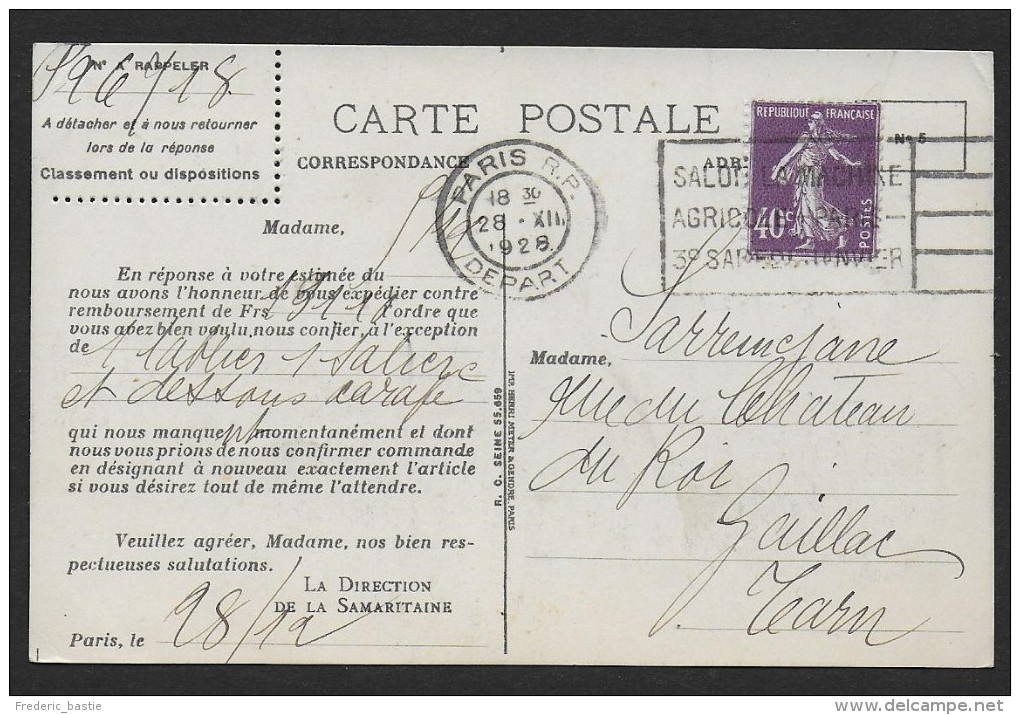 N° A RAPPELER
A détacher et à nous retourner
lors de la réponse
Classement ou dispositions
CARTE POSTALE
CORRESPONDANCE
PARIS R.P.
18 30
28 · XII
1928
DEPART
REPUBLIQUE FRANÇAISE
40c
POSTES
N° 5
ADR
SALON LA MACHINE
AGRICOLE PARIS
3e SAMEDI JANVIER
Madame,
En réponse à votre estimée du
nous avons l'honneur de vous expédier contre
remboursement de Frs l'ordre que
vous avez bien voulu nous confier, à l'exception
de 1 tablier 1 saliere
et dessous carafe
qui nous manquent momentanément et dont
nous vous prions de nous confirmer commande
en désignant à nouveau exactement l'article
si vous désirez tout de même l'attendre.
Veuillez agréer, Madame, nos bien res-
pectueuses salutations.
LA DIRECTION
DE LA SAMARITAINE
Paris, le 28/12
R. C. SEINE 55.659
IMP. HENRI MEYER & GENDRE, PARIS
Madame,
Rue du Château
du Roi
Gaillac
Tarn
Frederic_bastie
delcampe.net